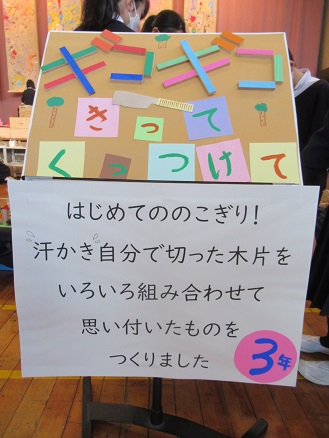 ギコギコ
きって
くっつけて
はじめてののこぎり!
汗かき自分で切った木片を
いろいろ組み合わせて
思い付いたものを
つくりました
3年